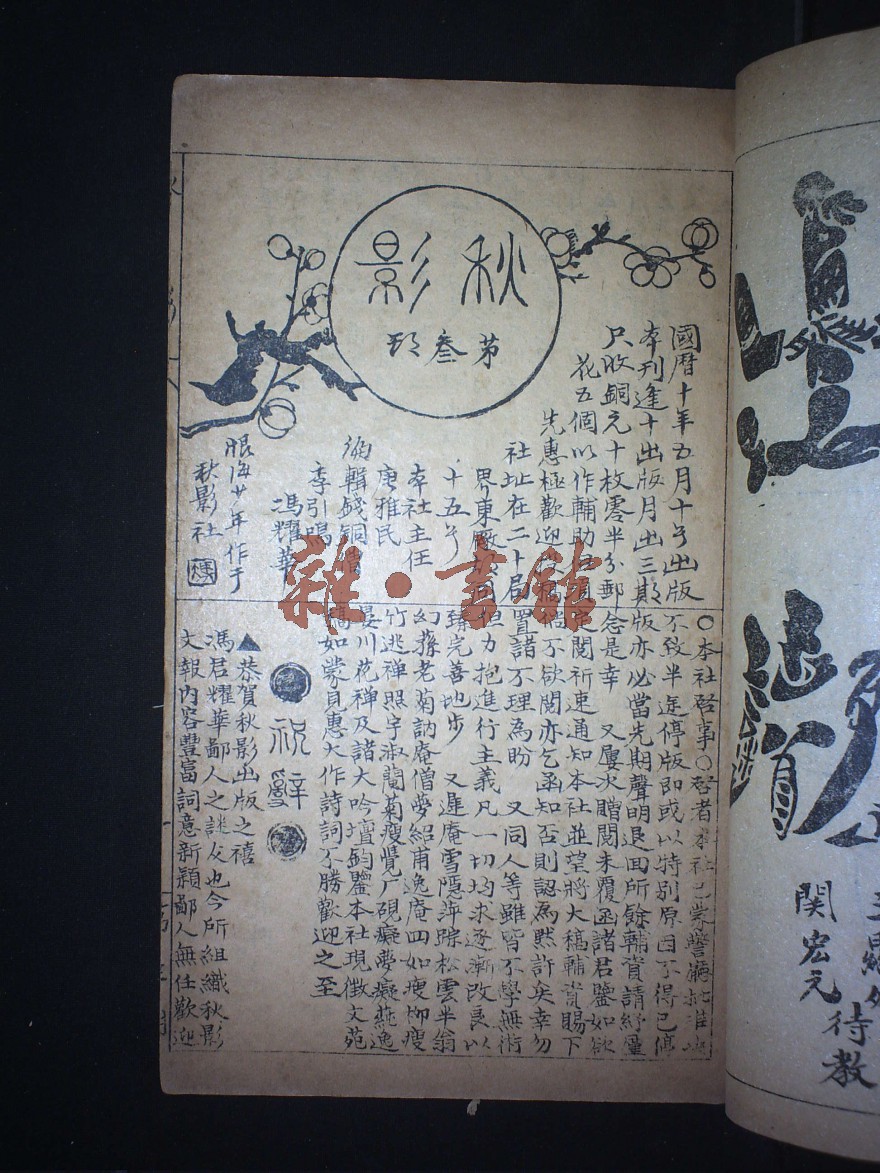 秋影
第叁期
國曆十年五月十号出版
本刊逢十出版月出三期
只收銅元十枚零半分郵
花五個以作輔助
先惠極歡迎
社址在二十局
界東廠
十五号
本社主任
唐雅民
編輯錢銅
李引鳴
馮耀華
眼海廿年作于
秋影社
○本社啓事○啓者本社已蒙警廳批准
不致半途停版即或以特別原因不得已停
版亦必當先期聲明退回所餘輔資請紓厪
念是幸 又屢次贈閱未覆函諸君鑒如欲
定閱祈速通知本社並望將大稿輔資賜下
倘不欲閱亦乞函知否則認為默許矣幸勿
置諸不理為盼 又同人等雖皆不學無術
但力抱進行主義凡一切均求逐漸改良以
臻完善地步 又遲庵雪隱萍踪松雲半翁
幻蓀老菊訥庵僧夢紹甫逸庵四如瘦柳瘦
竹逃禪照宇淑蘭菊瘦覺厂硯癡夢癡燕逸
晏川花禪及諸大吟壇鈞鑒本社現徵文苑
稿如蒙貝惠大作詩詞不勝歡迎之至
祝辭
▲恭賀秋影出版之禧
馮君耀華鄙人之謎友也今所組織秋影
文報内容豐富詞意新穎鄙人無任歡迎
関宏元
待教
雜·書館